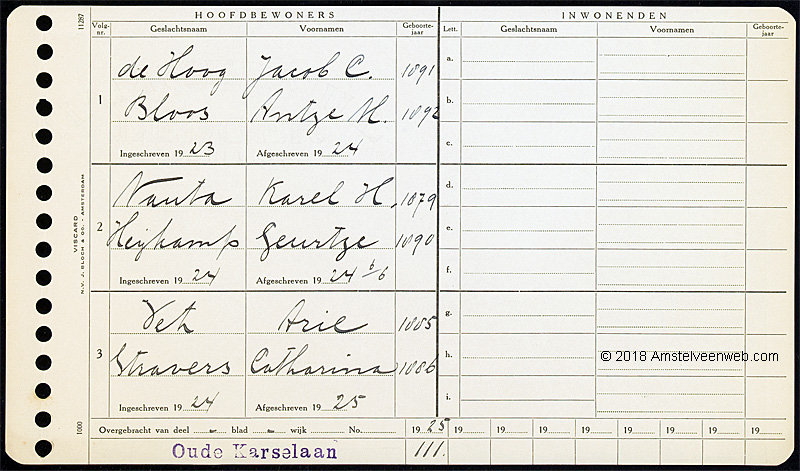 HOOFDBEWONERS
INWONENDEN
Volg-nr. Geslachtsnaam Voornamen Geboorte-jaar
Lett. Geslachtsnaam Voornamen Geboorte-jaar
1
de Hoog Jacob C. 1891
Bloos Antze M. 1892
Ingeschreven 1923 Afgeschreven 1924
2
Nauta Karel H. 1879
Heijkamp Geurtze 1890
Ingeschreven 1924 Afgeschreven 1924 6/6
3
Vet Arie 1885
Stravers Catharina 1886
Ingeschreven 1924 Afgeschreven 1925
a.
b.
c.
d.
e.
f.
g.
h.
i.
Overgebracht van deel - blad - wijk - No. 1925 19 19 19 19 19 19 19 19
Oude Karselaan 111.
11287
VISCARD
N.V. J. BLOCH & CO. - AMSTERDAM
1000
© 2018 Amstelveenweb.com